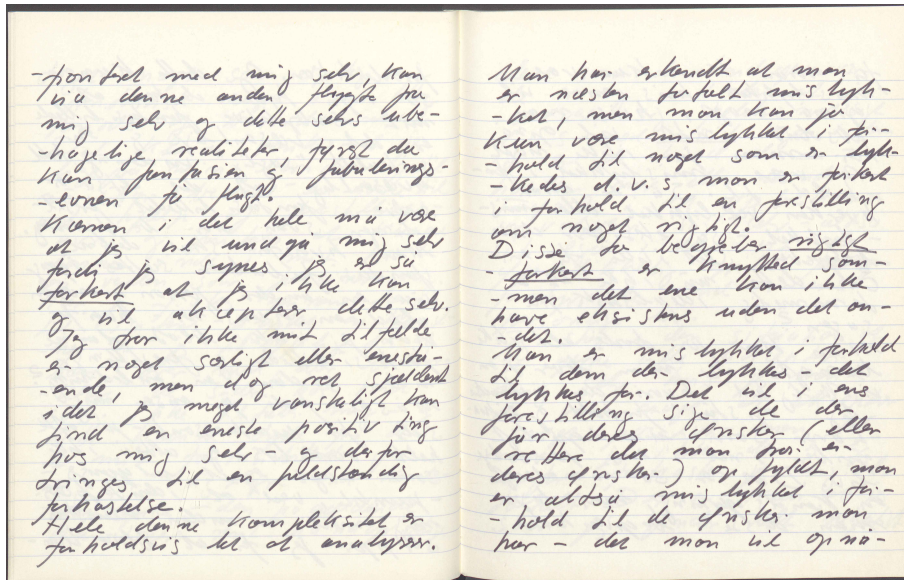 -fronteret med mig selv, kan
via denne anden flugte fra
mig selv og dette selvs ube-
-hagelige realiteter, først da
kan fantasien og fabulerings-
-evnen få flugt.
Kærnen i det hele må være
at jeg vil undgå mig selv
fordi jeg synes jeg er så
forkert at jeg ikke kan
og vil akceptere dette selv.
Jeg tror ikke mit tilfælde
er noget særligt eller enestå-
-ende, men dog ret sjældent
idet jeg meget vanskeligt kan
find en eneste positiv ting
hos mig selv - og derfor
tvinges til en fuldstændig
forkastelse.
Hele denne kompleksitet er
forholdsvis let at analyser.
Man har erkendt at man
er næsten totalt mislyk-
-ket, men man kan jo
kun være mislykket i for-
-hold til noget som er lyk-
-kedes d.v.s man er forkert
i forhold til en forestilling
om noget rigtigt.
Disse to begreber rigtigt
- forkert er knytted som-
-men det ene kan ikke
have eksistens uden det an-
-det.
Man er mislykket i forhold
til dem der lykkes - det
lykkes for. Det vil i ens
forestilling sige de der
får deres ønsker (eller
rettere det man tror er
deres ønsker) opfyldt, man
er altså mislykket i for-
-hold til de ønsker man
har - det man vil opnå-